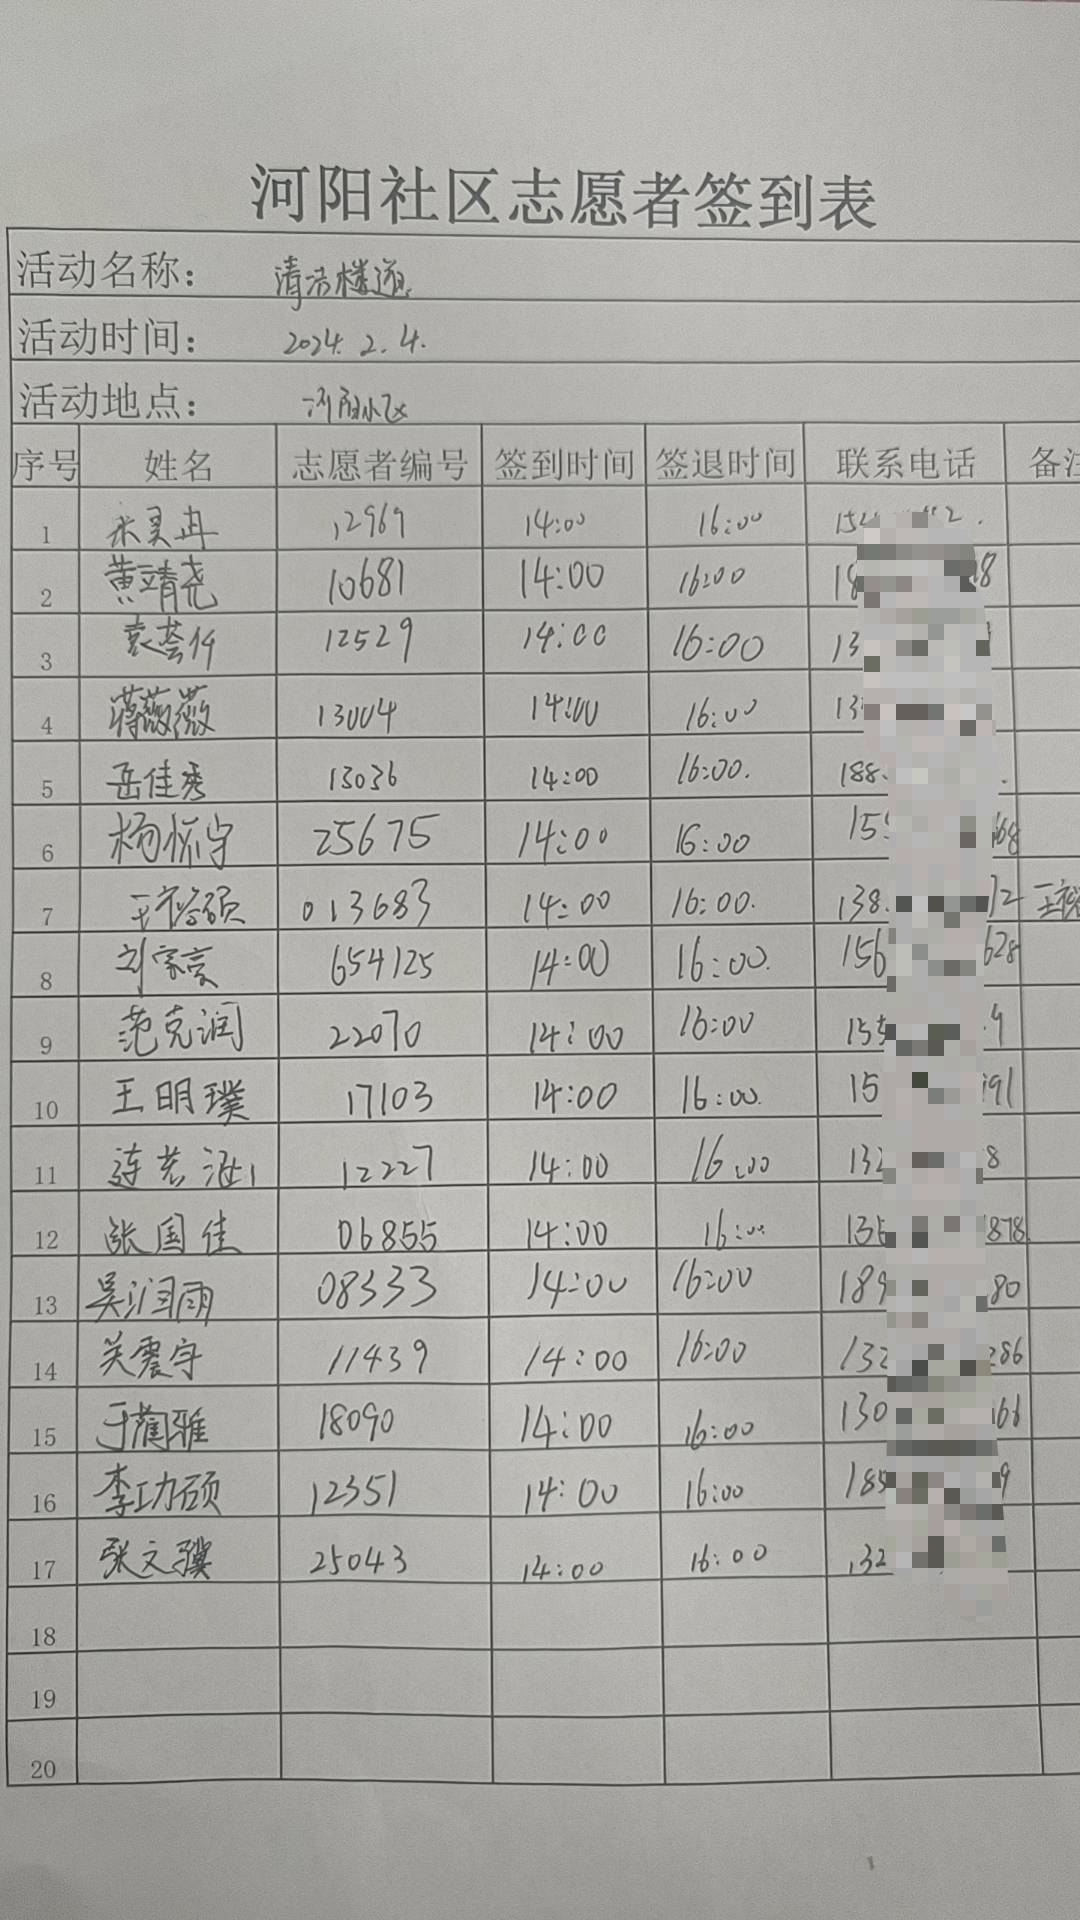 河阳社区志愿者签到表
活动名称： 清洁楼道
活动时间： 2024.2.4.
活动地点： 河阳小区
序号 姓名 志愿者编号 签到时间 签退时间 联系电话 备注
1 米昊冉 12969 14:00 16:00
2 黄靖尧 10681 14:00 16:00
3 袁荟仟 12529 14:00 16:00
4 蒋薇薇 13004 14:00 16:00
5 岳佳秀 13036 14:00 16:00. 188
6 杨怀宇 25675 14:00 16:00 155 668
7 王裕硕 013683 14:00 16:00. 138. 72 王裕
8 刘家豪 654125 14:00 16:00. 156 628
9 范克润 22070 14:00 16:00 155 9
10 王明璞 17103 14:00 16:00. 15 91
11 连若涵 12227 14:00 16:00 132 8
12 张国佳 06855 14:00 16:00 136 878
13 吴润雨 08333 14:00 16:00 189 80
14 关震宇 11439 14:00 16:00 132 286
15 于蔺雅 18090 14:00 16:00 130 66
16 李功硕 12351 14:00 16:00 185 9
17 张文骥 25043 14:00 16:00 132
18
19
20